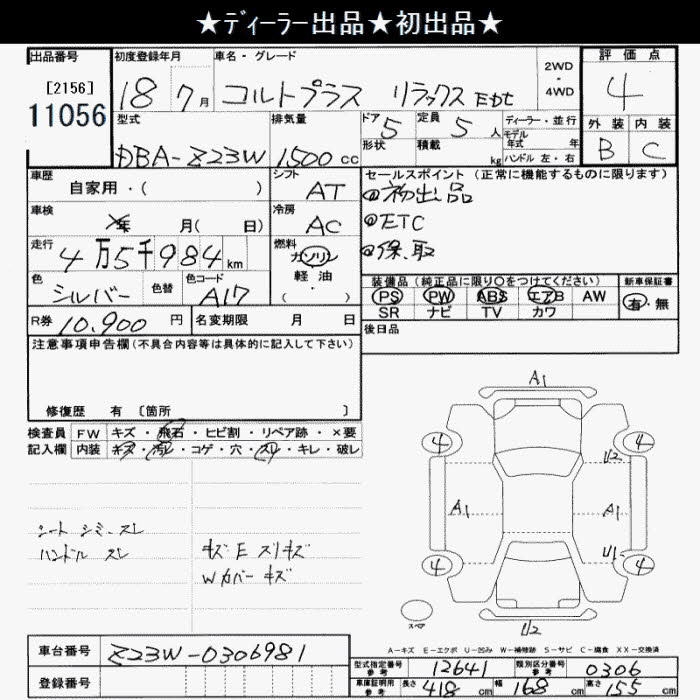 ★ディーラー出品★初出品★
出品番号 初度登録年月 車名・グレード 2WD・4WD 評価点
[2156] 11056 18 7月 コルトプラス リラックス Edt 4
型式 排気量 ドア 5 定員 5人 ディーラー・並行 外装 内装
形状 積載 kg モデル年式 年 ハンドル 左・右
DBA-Z23W 1,500cc B C
車歴 自家用・( ) シフト AT セールスポイント(正常に機能するものに限ります)
◎初出品
車検 年 月( 日) 冷房 AC ◎ETC
走行 4万5千984km 燃料 ガソリン 軽油 ・( ) ◎保、取
色 シルバー 色替 色コード A17
装備品(純正品に限り○をつけてください) 新車保証書
PS PW ABS エアB AW 有・無
SR ナビ TV カワ
R券 10,900円 名変期限 月 日 後日品
注意事項申告欄(不具合内容等は具体的に記入して下さい)
修復歴 有 〔箇所 〕
検査員 FW キズ・飛石・ヒビ割・リペア跡・×要
記入欄 内装 キズ・汚レ・コゲ・穴・スレ・キレ・破レ
シート シミ、スレ
ハンドル スレ
キズE スリキズ
Wカバー キズ
A1
4 4
U2
A1 A1
U1
4 4
スペア
U2
A-キズ E-エクボ U-凹み W-補修跡 S-サビ C-腐食 XX-交換済
車台番号 Z23W-0306981
登録番号
型式指定番号 参考 12641 類別区分番号 参考 0306
車庫証明用 参考 長さ 418cm 幅 168cm 高さ 155cm